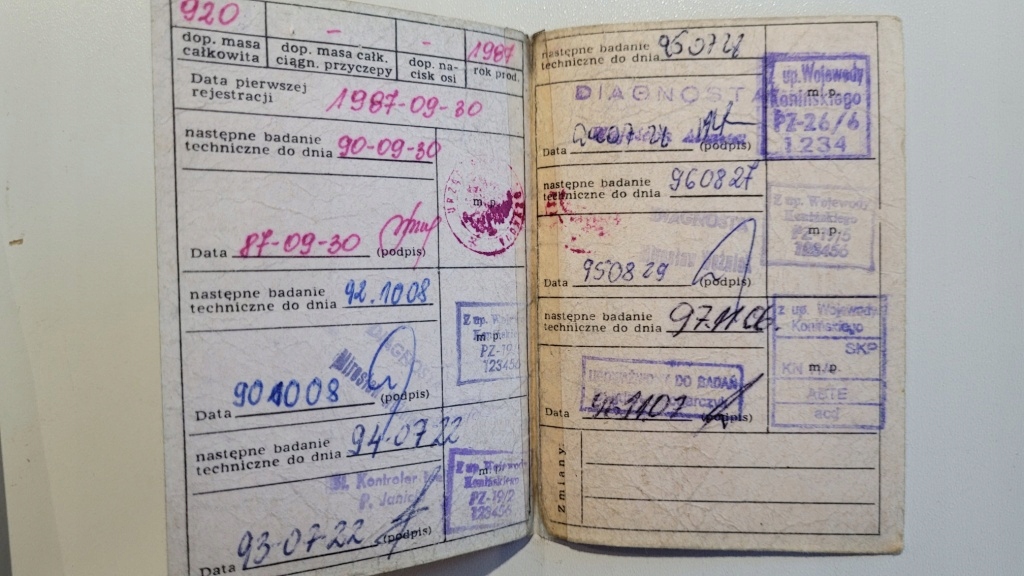 920
-
-
1987
dop. masa całkowita
dop. masa całk. ciągn. przyczepy
dop. nacisk osi
rok prod.
Data pierwszej rejestracji 1987-09-30
następne badanie
techniczne do dnia 90-09-30
m.p.
Data 87-09-30 (podpis)
następne badanie
techniczne do dnia 92.1008
DIAGNOST
Z up. Woj
m.p.
PZ-19/
123456
Data 901008 (podpis)
następne badanie
techniczne do dnia 94-07-22
Kontroler
P. Janic
Z up. Wojewody
m.p.
Konińskiego
PZ-19/2
123456
Data 93-07-22 (podpis)
następne badanie
techniczne do dnia 950728
DIAGNOSTA
Z up. Wojewody
m.p.
Konińskiego
PZ-26/6
1234
Data (podpis)
następne badanie
techniczne do dnia 960827
DIAGNOSTA
Z up. Wojewody
Konińskiego
m.p.
123456
Data 950829 (podpis)
następne badanie
techniczne do dnia 97.11.06.
z up. Wojewody
Konińskiego
SKP
KN m.p.
DO BADAŃ
Data 961107 (podpis)
Zmiany